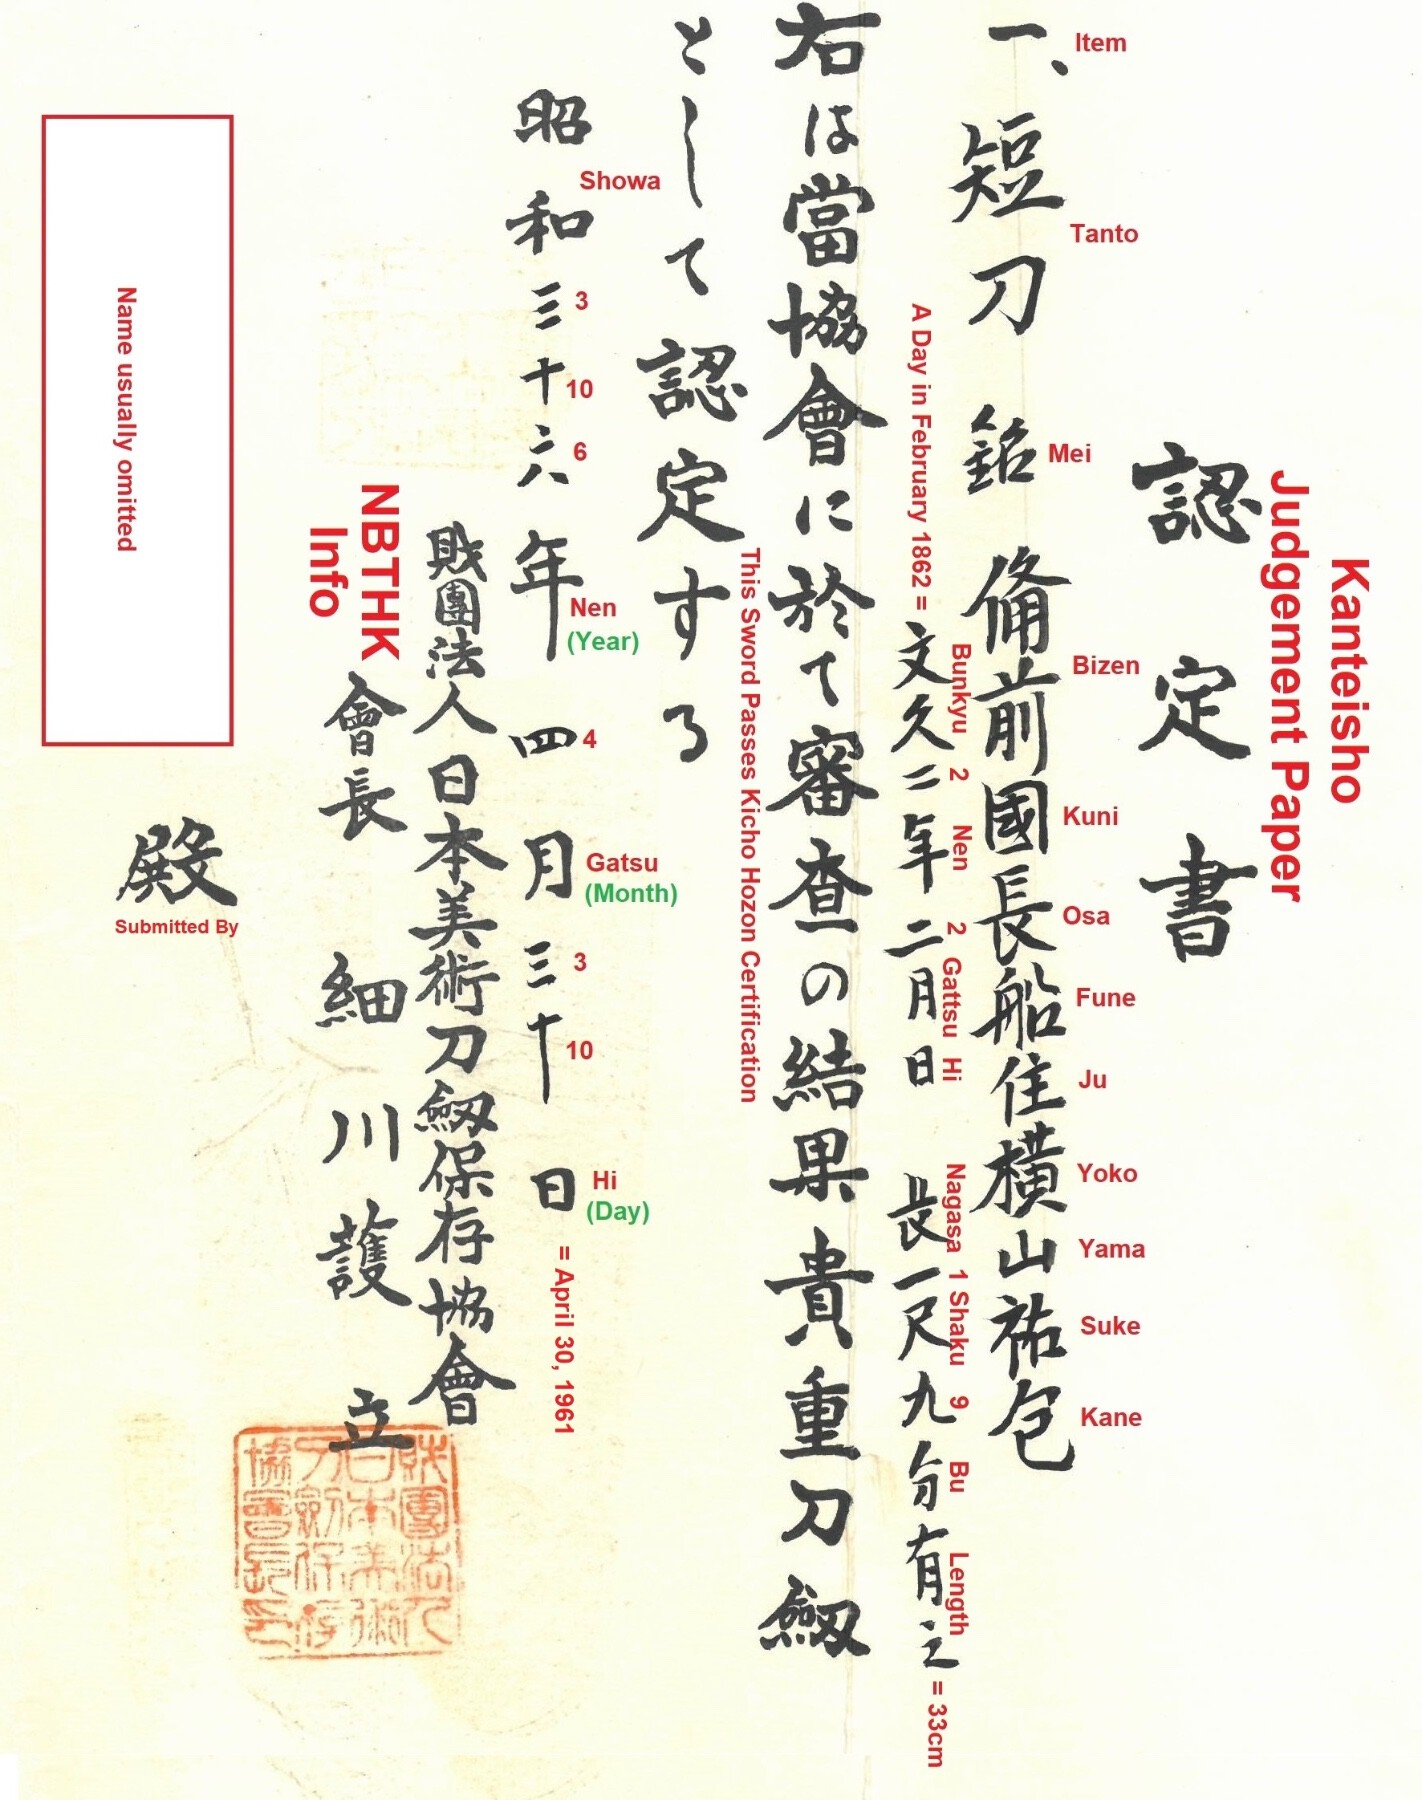 Kanteisho
Judgement Paper
認定書
一、短刀 銘 備前國長船住横山祐包
Item
Tanto
Mei
Bizen
Kuni
Osa
Fune
Ju
Yoko
Yama
Suke
Kane
A Day in February 1862 =
文久二年二月日 長一尺九分有之
Bunkyu 2 Nen 2 Gattsu Hi Nagasa 1 Shaku 9 Bu Length
= 33cm
右は當協會に於て審査の結果貴重刀劔
This Sword Passes Kicho Hozon Certification
として認定する
昭和三十六年四月三十日
Showa
3
10
6
Nen
(Year)
4
Gatsu
(Month)
3
10
Hi
(Day)
= April 30, 1961
財團法人日本美術刀劔保存協會
NBTHK
Info
會長 細川護立
財團法人日本美術刀劔保存協會長印
殿
Submitted By
Name usually omitted